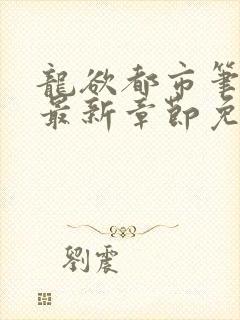 龍欲都市筆
最新章節免
劉震